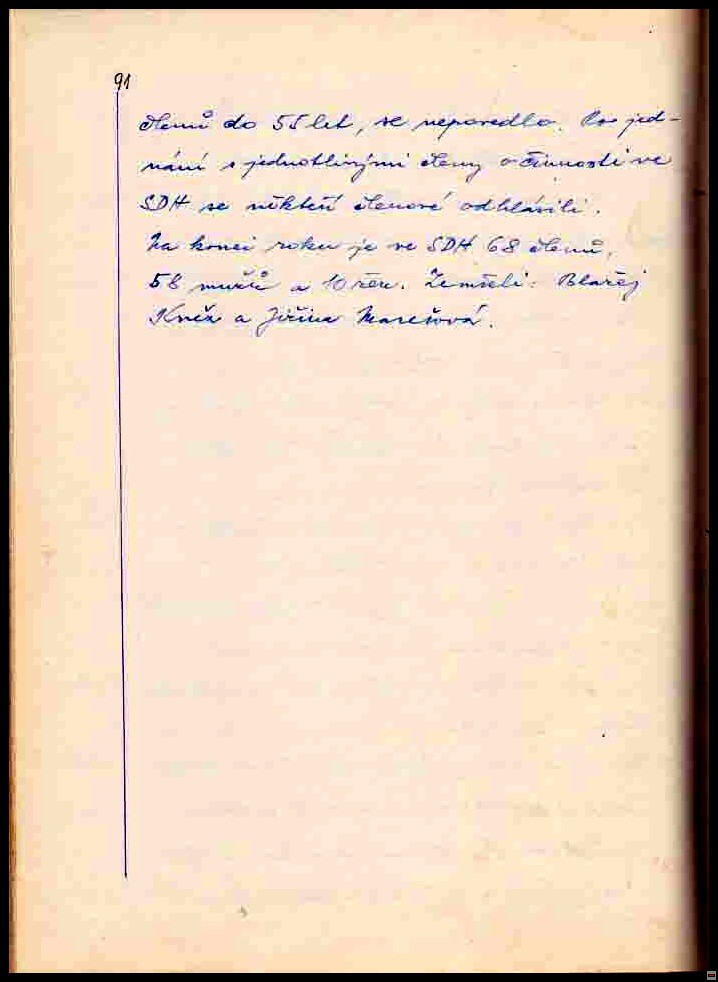 91
členů do 55 let, se nepovedlo. Po jed-
nání s jednotlivými členy o činnosti ve
SDH se někteří členové odhlásili.
Na konci roku je ve SDH 68 členů,
58 mužů a 10 žen. Zemřeli: Blažej
Kněz a Jiřina Marešová.